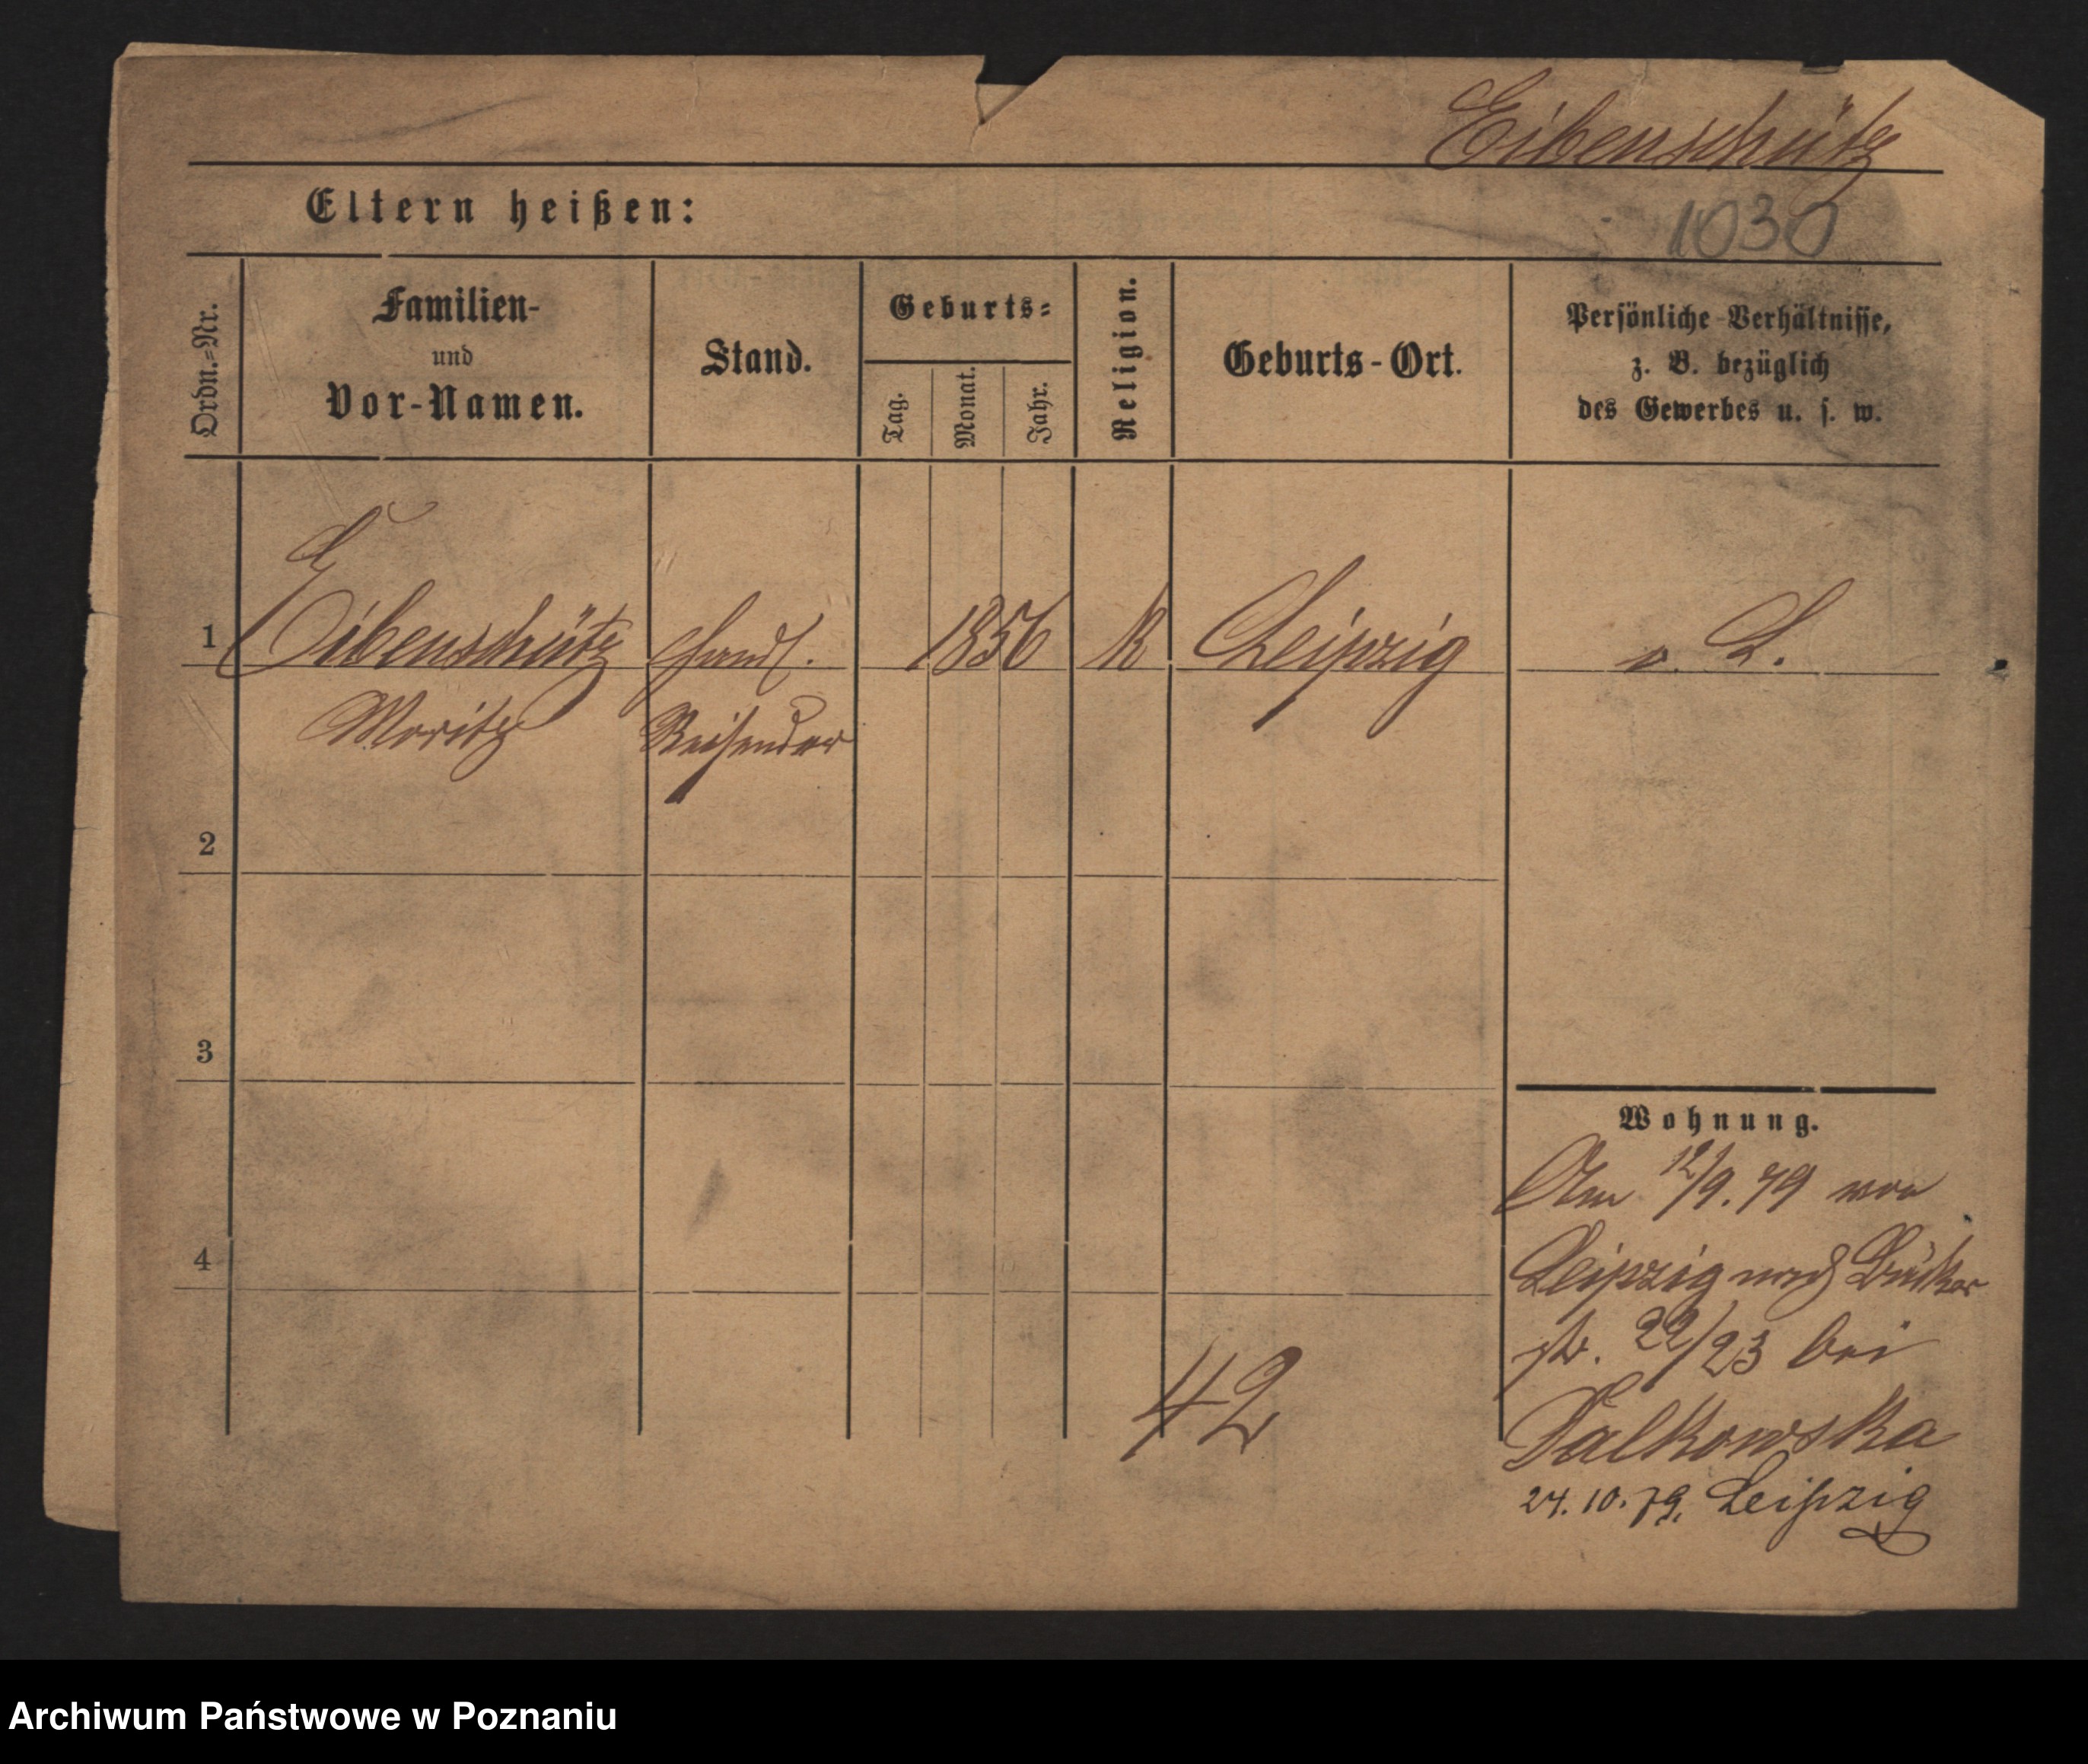 Eibenschütz
1030
Eltern heißen:
Ordn.=Nr.
Familien-
und
Vor-Namen.
Stand.
Geburts=
Tag.
Monat.
Jahr.
Religion.
Geburts-Ort.
Persönliche Verhältnisse,
z. B. bezüglich
des Gewerbes u. s. w.
1
Eibenschütz
Moritz
Handl.
Reisender
1856
Leipzig
v. L.
2
3
4
Wohnung.
Am 12/9. 79 von
Leipzig nach Büttel
str. 22/23 bei
Falkowska
24.10.79. Leipzig
42
Archiwum Państwowe w Poznaniu